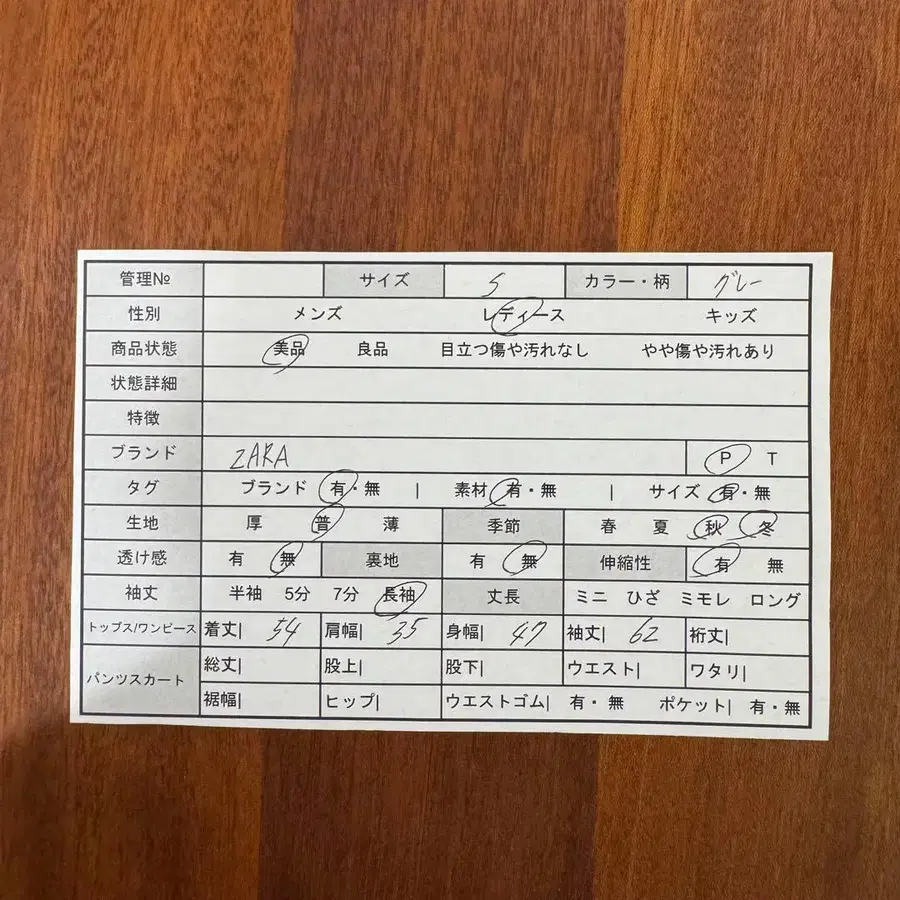 管理№ サイズ S カラー・柄 グレー
性別 メンズ レディース キッズ
商品状態 美品 良品 目立つ傷や汚れなし やや傷や汚れあり
状態詳細
特徴
ブランド ZARA P T
タグ ブランド 有・無 | 素材 有・無 | サイズ 有・無
生地 厚 普 薄 季節 春 夏 秋 冬
透け感 有 無 裏地 有 無 伸縮性 有 無
袖丈 半袖 5分 7分 長袖 丈長 ミニ ひざ ミモレ ロング
トップス/ワンピース 着丈| 54 肩幅| 35 身幅| 47 袖丈| 62 裄丈|
パンツスカート 総丈| 股上| 股下| ウエスト| ワタリ|
裾幅| ヒップ| ウエストゴム| 有・無 ポケット| 有・無